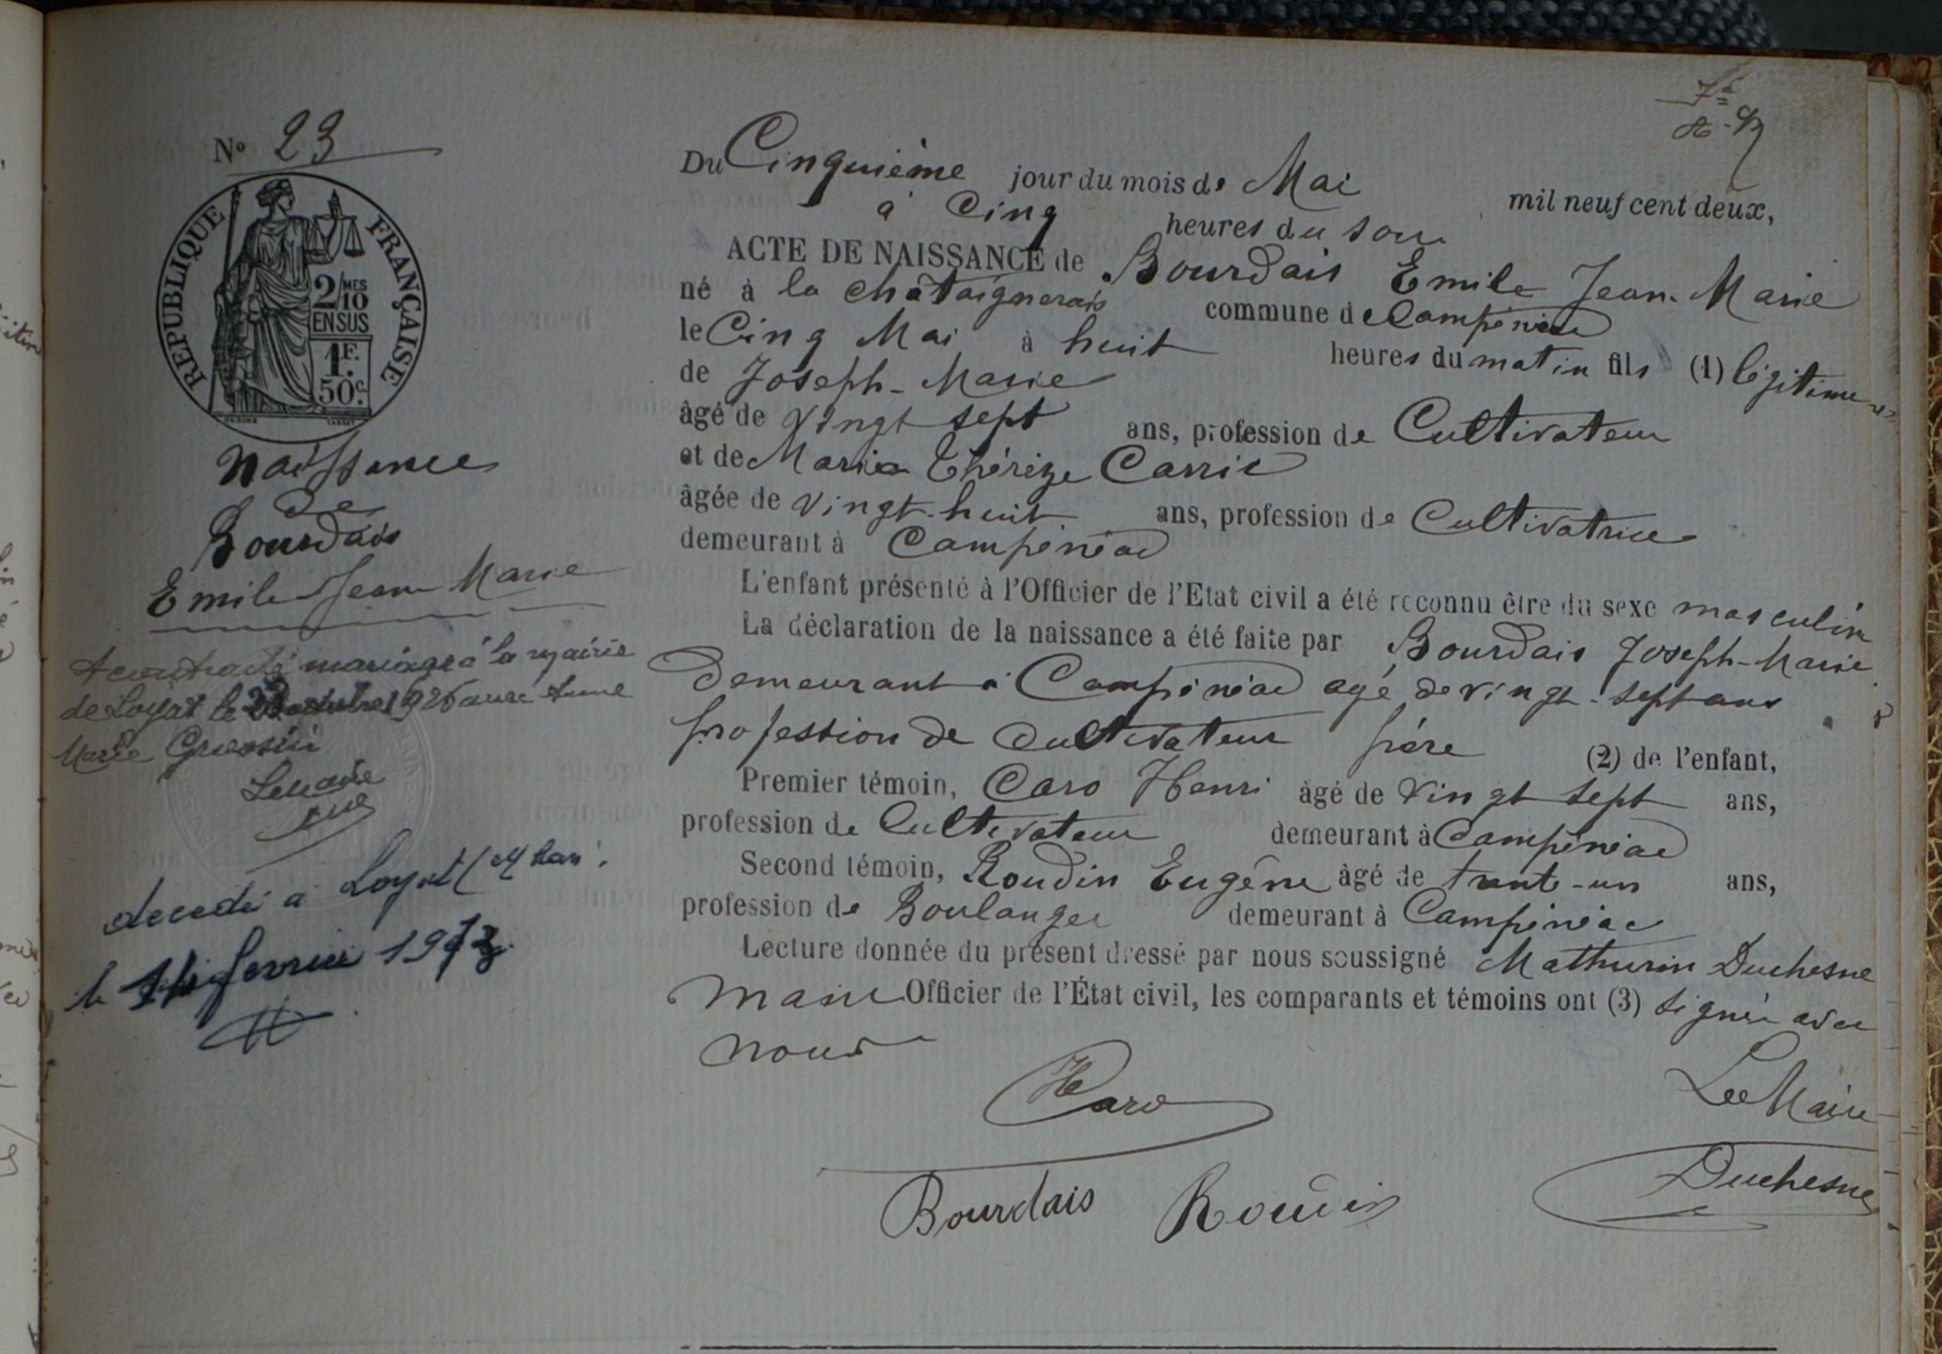 Nº 23
REPUBLIQUE FRANÇAISE
2/MES
10
EN SUS
1F.
50c.
Naissance
de
Bourdais
Emile Jean Marie
A contracté mariage à la mairie
de Loyat le octobre 1926 avec Anne
Marie
Le maire
décédé à Loyat
le février 1973
Du Cinquième jour du mois de Mai mil neuf cent deux,
à Cinq heures du soir
ACTE DE NAISSANCE de Bourdais Emile Jean-Marie
né à la châtaigneraie commune de Campénéac
le Cinq Mai à huit heures du matin fils (1) légitime
de Joseph-Marie
âgé de vingt sept ans, profession de Cultivateur
et de Marie Thérèze Carric
âgée de vingt-huit ans, profession de Cultivatrice
demeurant à Campénéac
L'enfant présenté à l'Officier de l'Etat civil a été reconnu être du sexe masculin
La déclaration de la naissance a été faite par Bourdais Joseph-Marie
Demeurant à Campénéac agé de vingt-sept ans
profession de Cultivateur père (2) de l'enfant,
Premier témoin, Caro Henri âgé de vingt sept ans,
profession de Cultivateur demeurant à Campénéac
Second témoin, Roudin Eugène âgé de trente-un ans,
profession de Boulanger demeurant à Campénéac
Lecture donnée du présent dressé par nous soussigné Mathurin Duchesne
Maire Officier de l'État civil, les comparants et témoins ont (3) signé avec
nous
HCaro
Le Maire
Bourdais Roudin Duchesne